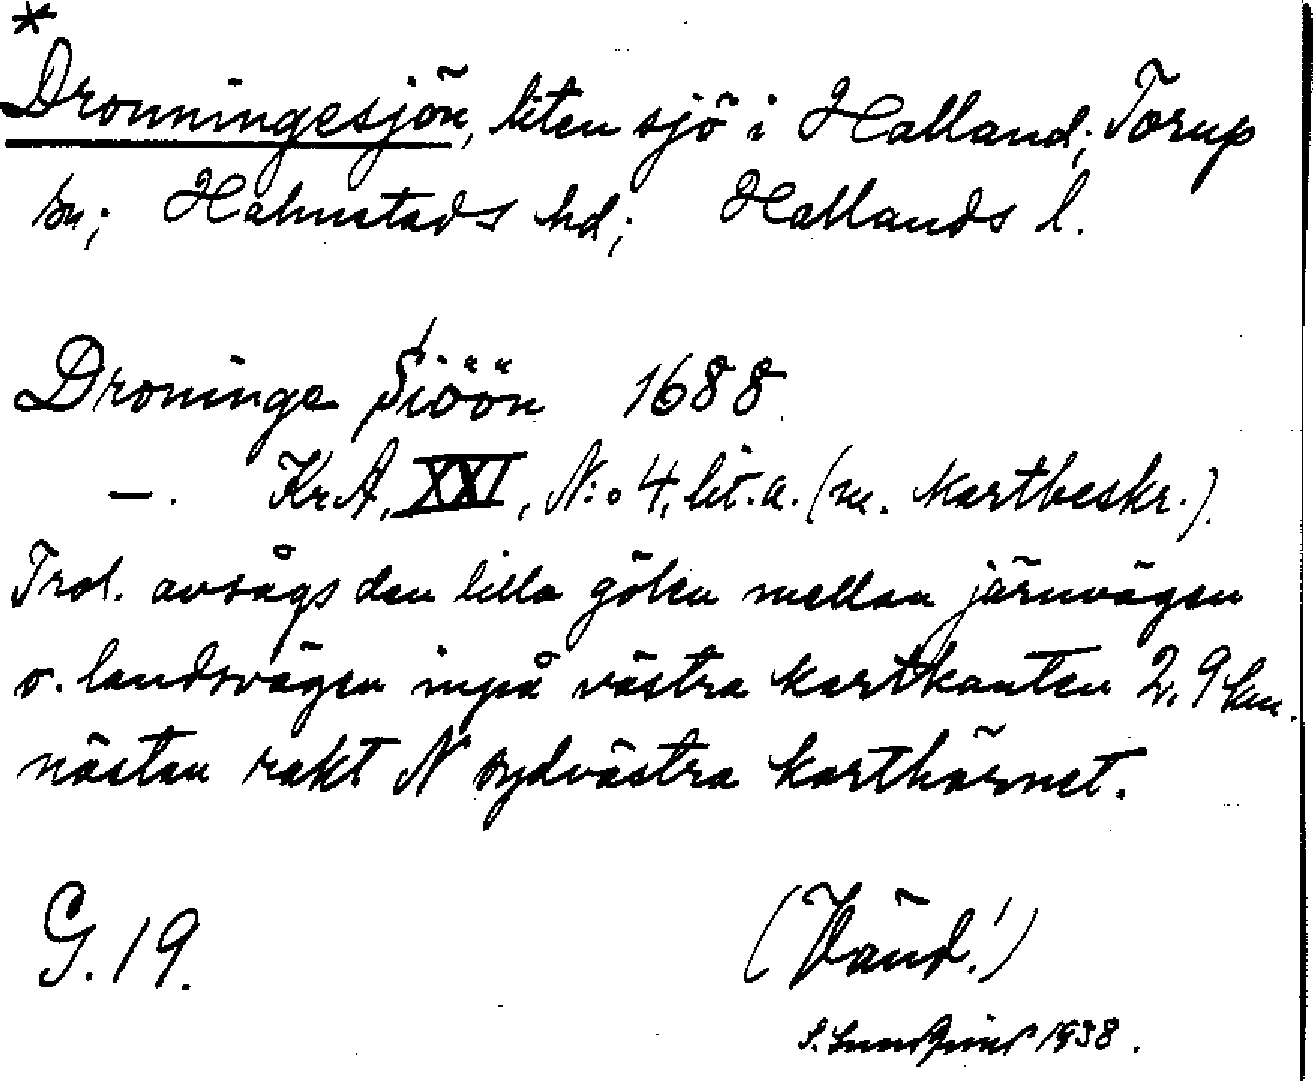 *
Dronningesjön, liten sjö i Halland; Torup
sn; Halmstads hd; Hallands l.
Droninge Siöön 1688.
—. Kr.A, XXI, N:o 4, lit.a. (m. kartbeskr.).
Trol. avsågs den lilla gölen mellan järnvägen
o. landsvägen inpå västra kartkanten 2,9 km.
nästan rakt N sydvästra karthörnet.
G. 19.
(Vänd!)
S. Lundqvist 1938.